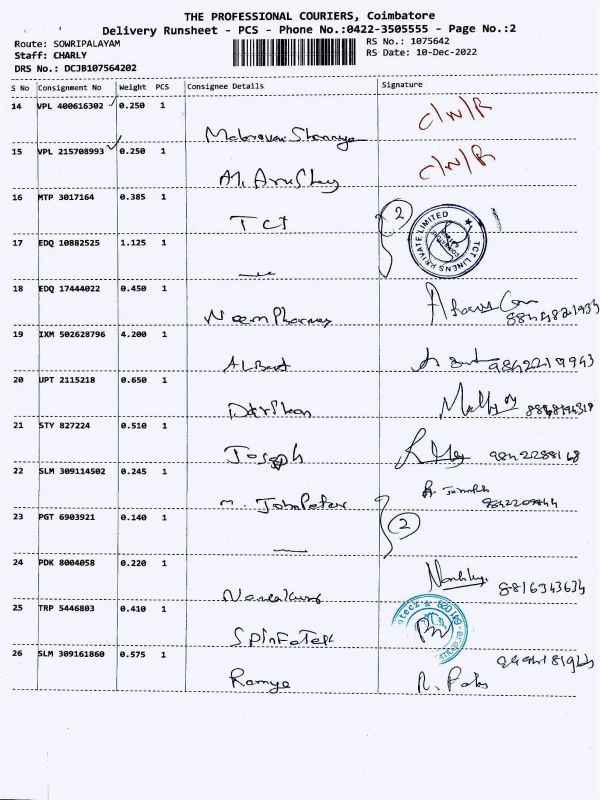 THE PROFESSIONAL COURIERS, Coimbatore
Delivery Runsheet - PCS - Phone No.:0422-3505555 - Page No.:2
Route: SOWRIPALAYAM
RS No.: 1075642
Staff: CHARLY
RS Date: 10-Dec-2022
DRS No.: DCJB107564202
S No Consignment No Weight PCS Consignee Details Signature
14 VPL 400616302 0.250 1 C/N/R
15 VPL 215708993 0.250 1 C/N/R
16 MTP 3017164 0.385 1 TCT 2
TCT LINENS PRIVATE LIMITED
17 EDQ 10882525 1.125 1
18 EDQ 17444022 0.450 1 Neem Pharmay
19 IXM 502628796 4.200 1 Albert 9842219943
20 UPT 2115218 0.650 1 Darshan
21 STY 827224 0.510 1 Joseph 9842288168
22 SLM 309114502 0.245 1 M. John Peter
23 PGT 6903921 0.140 1 2
24 PDK 8004058 0.220 1 8816343634
25 TRP 5446803 0.410 1 Spinfotek
26 SLM 309161860 0.575 1 Ramya